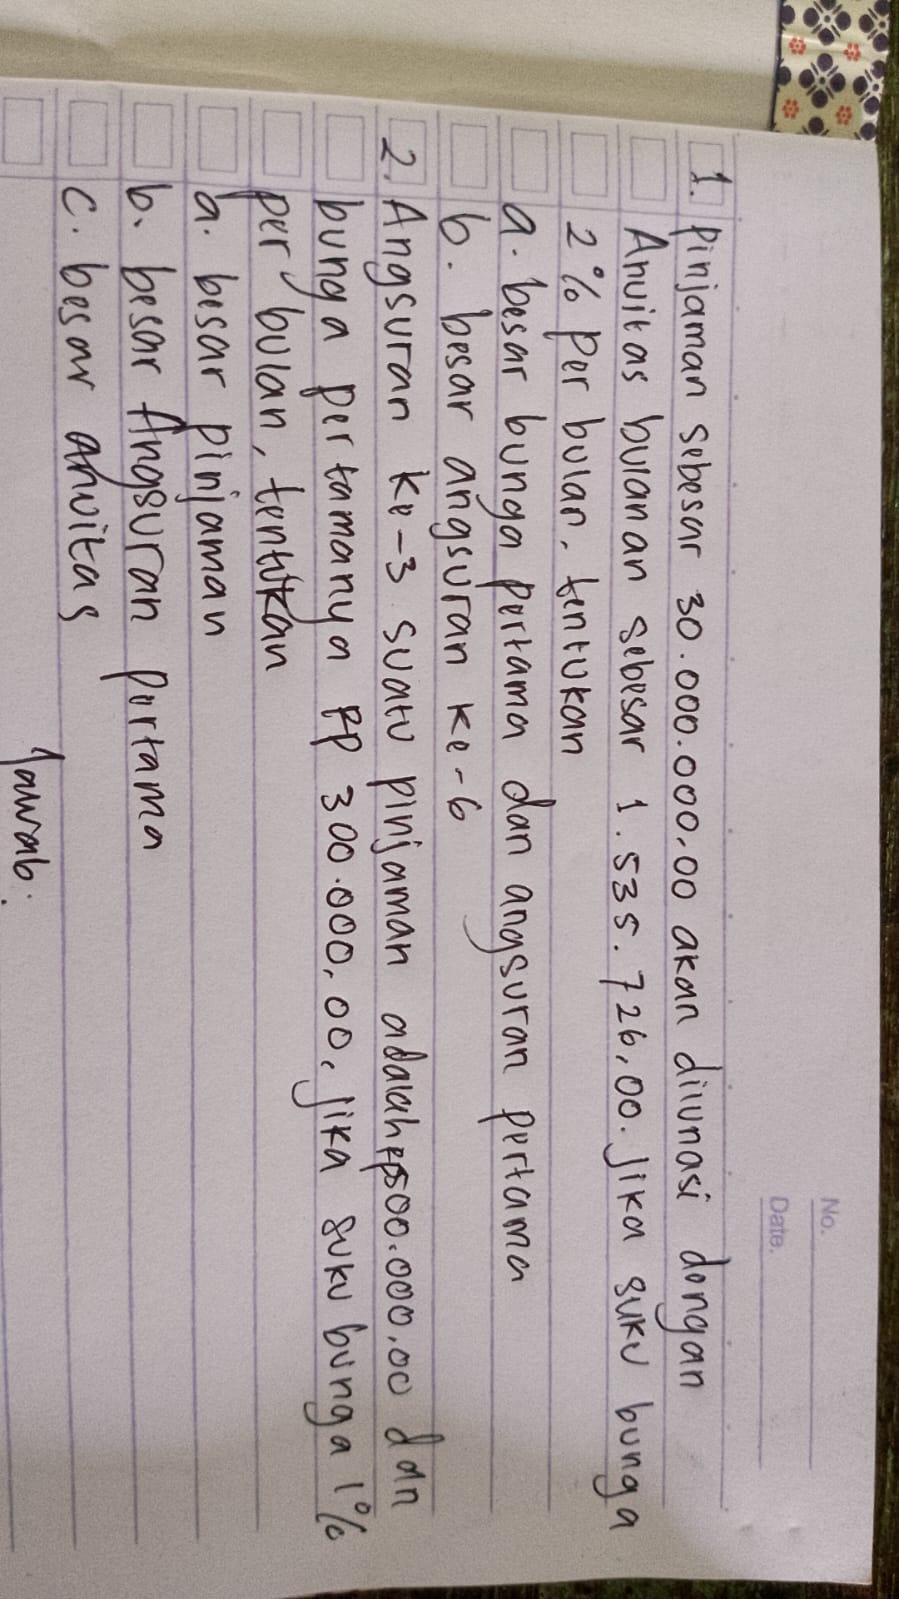 No.
Date.
1. Pinjaman sebesar 30.000.000,00 akan dilunasi dengan
Anuitas bulanan sebesar 1.535.726,00. Jika suku bunga
2% per bulan, tentukan
a. besar bunga pertama dan angsuran pertama
b. besar angsuran ke-6
2. Angsuran ke-3 suatu pinjaman adalah Rp500.000,00 dan
bunga pertamanya Rp 300.000,00. Jika suku bunga 1%
per bulan, tentukan
a. besar pinjaman
b. besar Angsuran pertama
c. besar anuitas
Jawab: